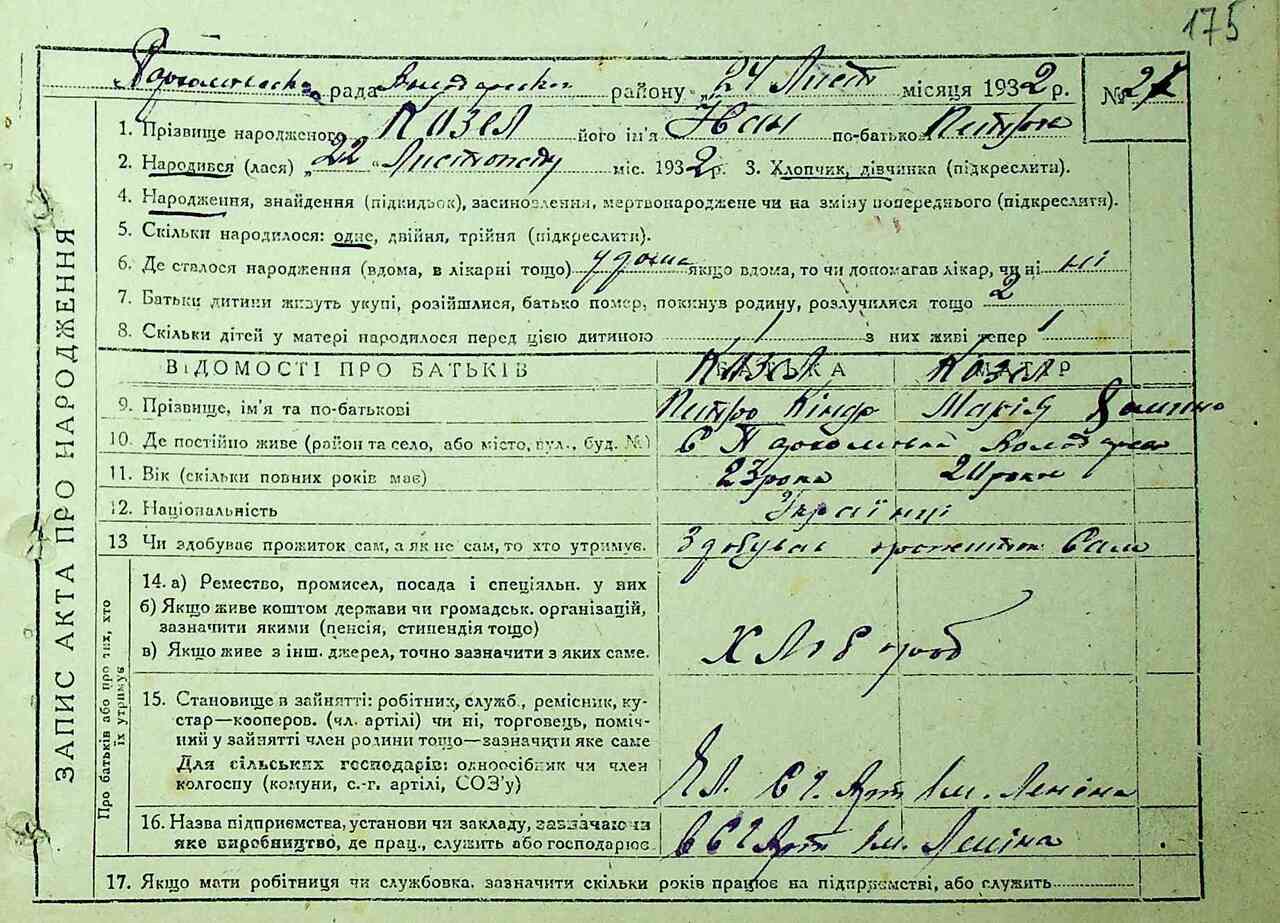 175
рада району „24 Лист місяця 1932 р. № 27
ЗАПИС АКТА ПРО НАРОДЖЕННЯ
1. Прізвище народженого Козел його ім'я Іван по-батькові Петров
2. Народився (лася) „22 " Листопаду міс. 1932 р. 3. Хлопчик, дівчинка (підкреслити).
4. Народження, знайдення (підкидьок), засиновлення, мертвонароджене чи на зміну попереднього (підкреслити).
5. Скільки народилося: одне, двійня, трійня (підкреслити).
6. Де сталося народження (вдома, в лікарні тощо) у дома якщо вдома, то чи допомагав лікар, чи ні ні
7. Батьки дитини живуть укупі, розійшлися, батько помер, покинув родину, розлучилися тощо 2
8. Скільки дітей у матері народилося перед цією дитиною 1 з них живі тепер 1
ВІДОМОСТІ ПРО БАТЬКІВ БАТЬКА Козел МАТІР Козел
9. Прізвище, ім'я та по-батькові Петро Кіндр Марія
10. Де постійно живе (район та село, або місто, вул., буд. №) С
11. Вік (скільки повних років має) 23 роки 20 роки
12. Національність Українці
13 Чи здобуває прожиток сам, а як не сам, то хто утримує. Здобуває прожиток Сам
Про батьків або про тих, хто їх утримує
14. а) Ремество, промисел, посада і спеціяльн. у них
б) Якщо живе коштом держави чи громадськ. організацій,
зазначити якими (пенсія, стипендія тощо)
в) Якщо живе з інш. джерел, точно зазначити з яких саме.
Хліборб
15. Становище в зайнятті: робітник, служб., ремісник, ку-
стар—кооперов. (чл. артілі) чи ні, торговець, поміч-
ний у зайнятті член родини тощо—зазначити яке саме
Для сільських господарів: одноосібник чи член
колгоспу (комуни, с.-г. артілі, СОЗ'у)
Чл. С г. Арт Ім. Леніна
16. Назва підприємства, установи чи закладу, зазначаючи
яке виробництво, де прац., служить або господарює
в С г Арт Ім. Леніна
17. Якщо мати робітниця чи службовка, зазначити скільки років працює на підприємстві, або служить